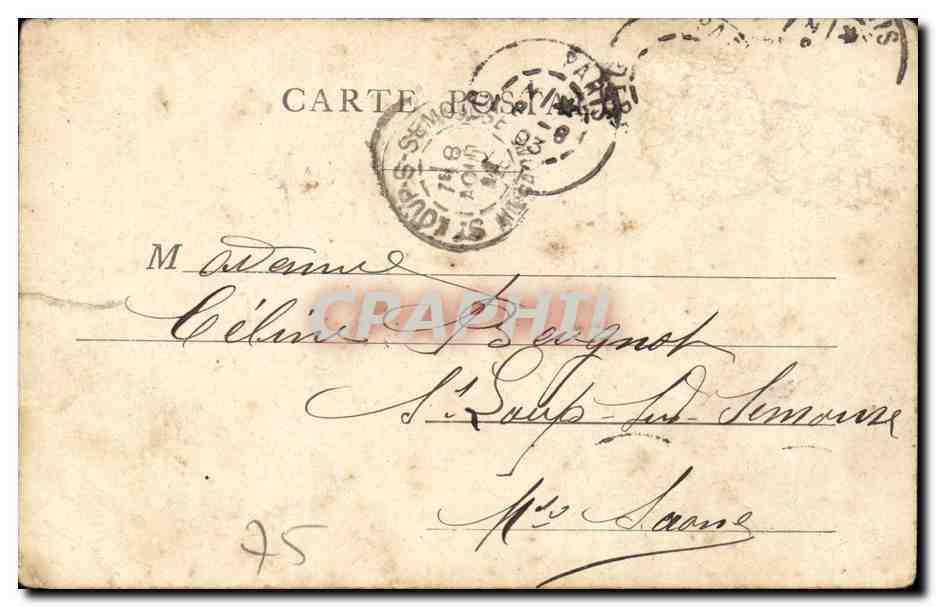 CARTE POSTALE
PARIS
8 03
ST LOUP-S-SEMOUSE
8 AOUT
Madame
Céline Beugnot
St. Loup-sur-Semouse
Hte Saone
75
CRAPHT!